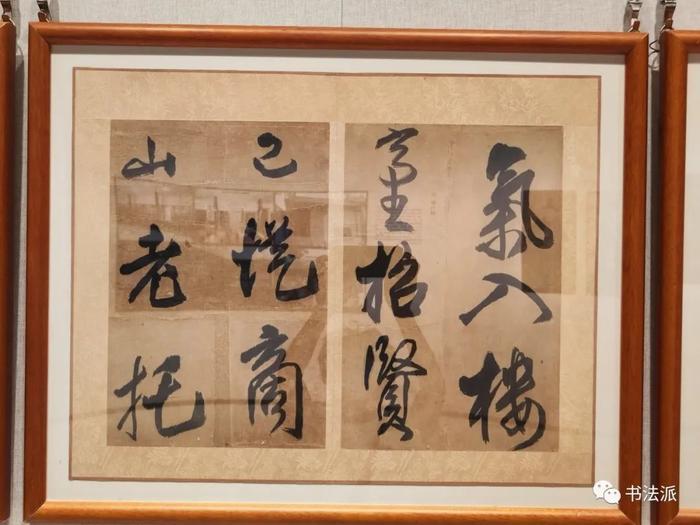 氣入樓
臺招賢
已從商
山老托
书法派